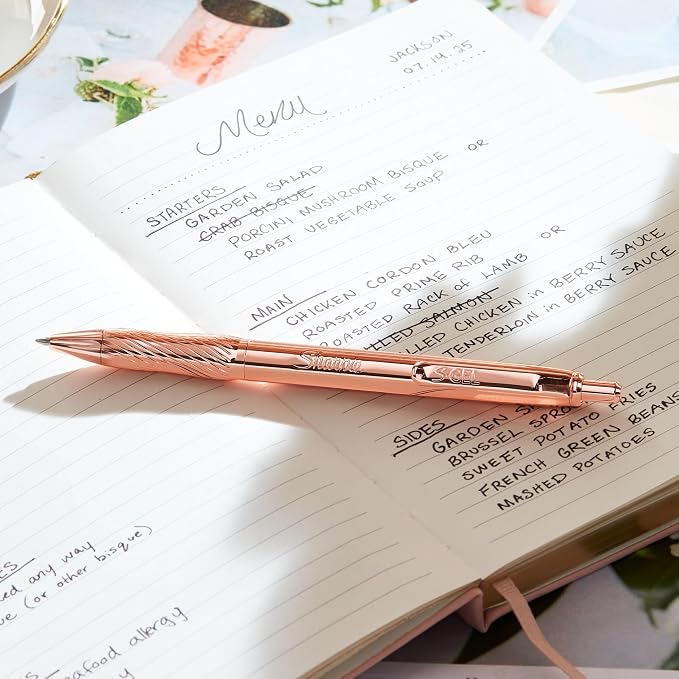 JACKSON
07.14.25
Menu
STARTERS
GARDEN SALAD
CRAB BISQUE
PORCINI MUSHROOM BISQUE OR
ROAST VEGETABLE SOUP
MAIN
CHICKEN CORDON BLEU
ROASTED PRIME RIB
ROASTED RACK OF LAMB OR
SALMON
CHICKEN in BERRY SAUCE
TENDERLOIN in BERRY SAUCE
SIDES
GARDEN
BRUSSEL
SWEET POTATO FRIES
FRENCH GREEN BEANS
MASHED POTATOES
Sharpie
S·GEL
any way
(or other bisque)
allergy